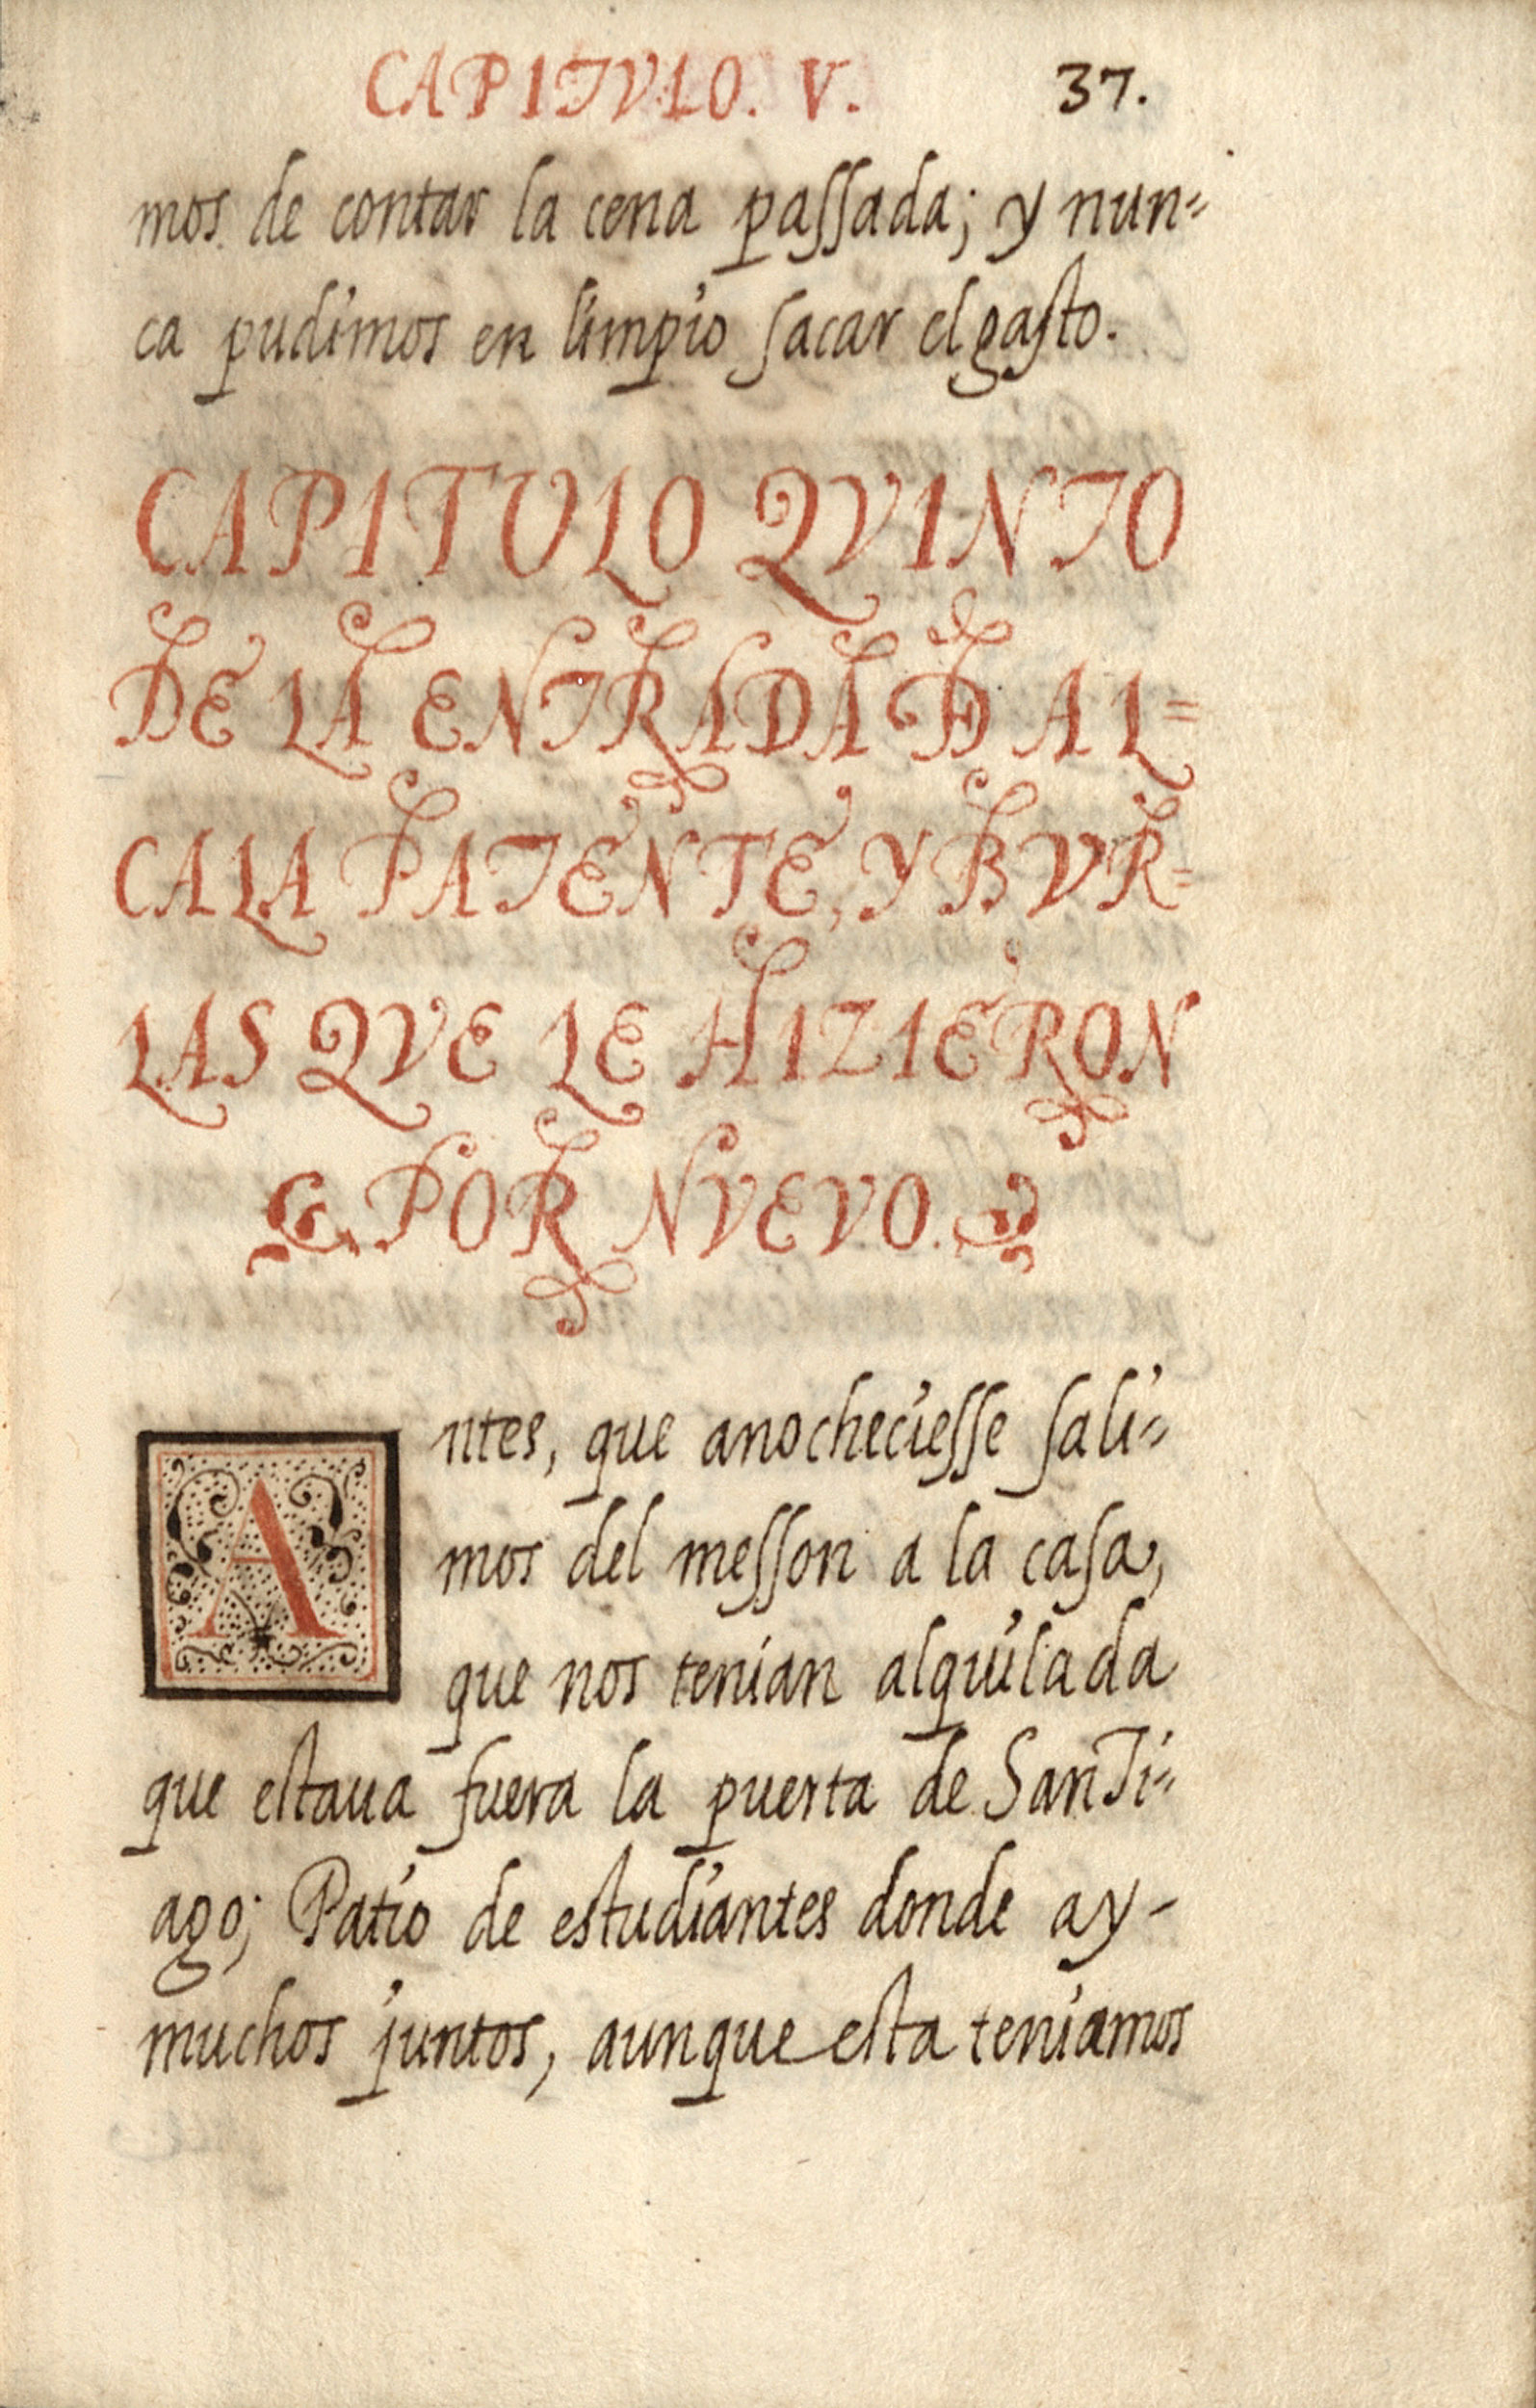 CAPITVLO. V. 37.
mos de contar la cena passada; y nun=
ca pudimos en limpio sacar el gasto.
CAPITULO QVINTO
DE LA ENTRADA DE AL=
CALA PATENTE, Y BVR=
LAS QVE LE HIZIERON
POR NVEVO.
Antes, que anocheciesse sali=
mos del messon a la casa,
que nos tenian alquilada
que estaua fuera la puerta de SanTi=
ago; Patio de estudiantes donde ay-
muchos juntos, aunque esta teniamos